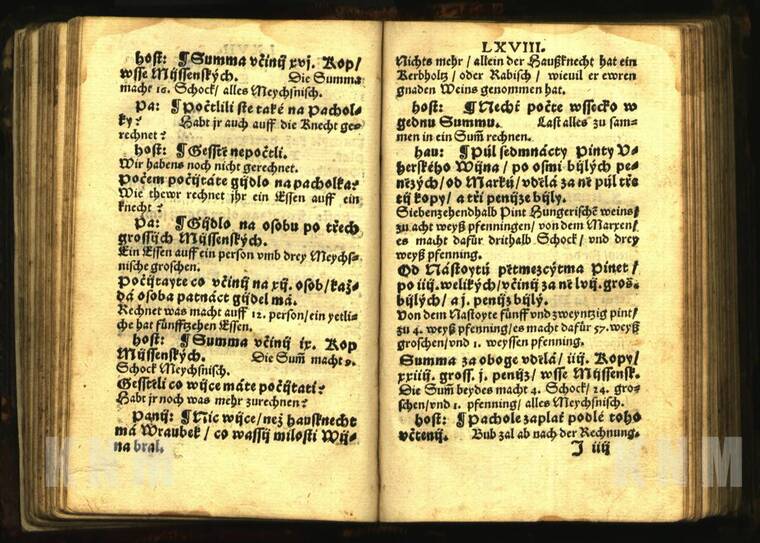 host: ¶ Summa včinij xvj. Kop/
wsse Mijssenských. Die Summa
macht 16. Schock/ alles Meychsnisch.
Pa: ¶ Počtlili ste také na Pachol-
ky? Habt jr auch auff die Knecht ge-
rechnet?
host: ¶ Gesstě nepočtli.
Wir habens noch nicht gerechnet.
Počem počijtáte gijdlo na pacholka?
Wie thewr rechnet jhr ein Essen auff ein
knecht?
Pa: ¶ Gijdlo na osobu po třech
grossijch Mijssenských.
Ein Essen auff ein person vmb drey Meychs-
nische groschen.
Počijtayte co včinij na xij. osob/ kaž-
dá osoba patnáct gijdel má.
Rechnet was macht auff 12. person/ ein yetli-
che hat fünfftzehen Essen.
host: ¶ Summa včinij ix. Kop
Mijssenských. Die Sum̃ macht 9.
Schock Meychsnisch.
Gesstěli co wijce máte počijtati?
Habt jr noch was mehr zurechnen?
Panij: ¶ Nic wijce/ než hausknecht
má Wraubek/ co wassij milosti Wij-
na bral.
LXVIII.
Nichts mehr/ allein der Haußknecht hat ein
Kerbholtz/ oder Rabisch/ wieuil er ewren
gnaden Weins genommen hat.
host: ¶ Nechť počte wssecko w
gednu Summu. Last alles zu sam-
men in ein Sum̃ rechnen.
hau: ¶ Půl sedmnácty Pinty V-
herského Wijna/ po osmi bijlých pe-
nězých/ od Marků/ vdělá za ně půl třě
tij kopy/ a tři penijze bijly.
Siebenzehendhalb Pint Hungerischẽ weins/
zu acht weyß pfenningen/ von dem Marxen/
es macht dafür drithalb Schock/ vnd drey
weyß pfenning.
Od Nástoytů pětmezcýtma Pinet/
po iiij. welikých/ včinij za ně lvij. groš.
bijlých/ a j. penijz bijlý.
Von dem Nastoyte fünff vnd zweyntzig pint/
zu 4. weyß pfenning/ es macht dafür 57. weyß
groschen/ vnd 1. weyssen pfenning.
Summa za oboge vdělá/ iiij. Kopy/
xxiiij. gross. j. penijz/ wsse Mijssensk.
Die Sum̃ beydes macht 4. Schock/ 24. gro-
schen/ vnd 1. pfenning/ alles Meychsnisch.
host: ¶ Pachole zaplať podlé toho
včtenij. Bub zal ab nach der Rechnung.
J iiij
KNM
KNM